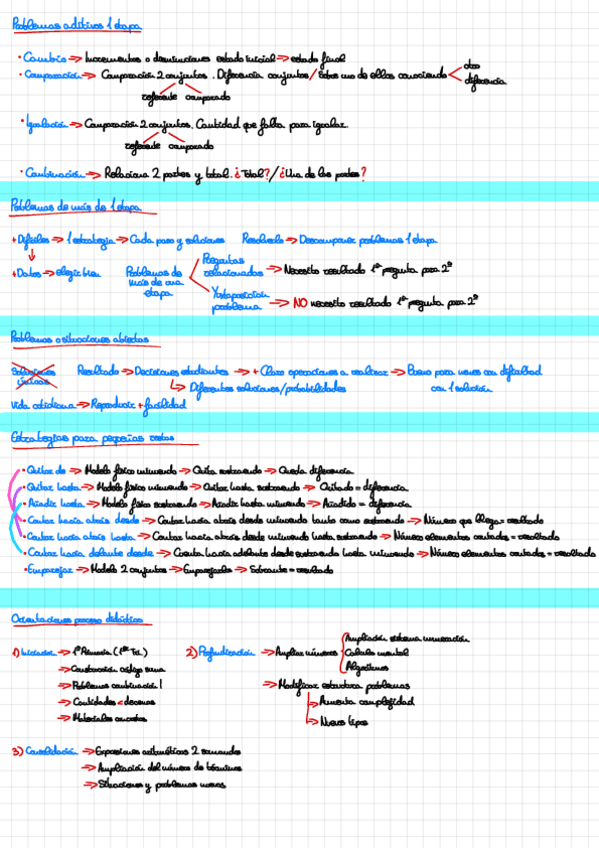 Problemas aditivos 1 etapa
· Cambio → Incrementos o disminuciones estado inicial → estado final
· Comparación → Comparación 2 conjuntos. Diferencia conjuntos / Sobre uno de ellos conociendo < otro
diferencia
referente comparado
· Igualación → Comparación 2 conjuntos. Cantidad que falta para igualar
referente comparado
· Combinación → Relaciona 2 partes y total. ¿Total? / ¿Una de las partes?
Problemas de más de 1 etapa
+ Difíciles → 1 estrategia → Cada paso y soluciones Resolverlo → Descomponer problemas 1 etapa
+ Datos → elegir bien
Problemas de más de una etapa
Preguntas relacionadas → Necesito resultado 1ª pregunta para 2ª
Yuxtaposición problema → NO necesito resultado 1ª pregunta para 2ª
Problemas o situaciones abiertas
Soluciones únicas
Resultado → Decisiones estudiantes → + Claro operaciones a realizar → Bueno para con dificultad
↳ Diferentes soluciones/probabilidades
con 1 solución
Vida cotidiana → Reproducir + facilidad
Estrategias para pequeñas restas
· Quitar de → Modelo físico minuendo → Quita sustraendo → Queda diferencia
· Quitar hasta → Modelo físico minuendo → Quitar hasta sustraendo → Quitado = diferencia
· Añadir hasta → Modelo físico sustraendo → Añadir hasta minuendo → Añadido = diferencia
· Contar hacia atrás desde → Contar hacia atrás desde minuendo tanto como sustraendo → Número que llega = resultado
· Contar hacia atrás hasta → Contar hacia atrás desde minuendo hasta sustraendo → Número elementos contados = resultado
· Contar hacia delante desde → Cuenta hacia adelante desde sustraendo hasta minuendo → Número elementos contados = resultado
· Emparejar → Modelo 2 conjuntos → Emparejarlos → Sobrante = resultado
Orientaciones proceso didáctico
1) Iniciación → 1º Primaria (1er Tri.)
→ Construcción código suma
→ Problemas combinación 1
→ Cantidades < decenas
→ Materiales concretos
2) Profundización → Ampliar números
Ampliación sistema numeración
Cálculo mental
Algoritmos
→ Modificar estructura problemas
→ Aumenta complejidad
→ Nuevos tipos
3) Consolidación → Expresiones aritméticas 2 sumandos
→ Ampliación del número de términos
→ Situaciones y problemas nuevos